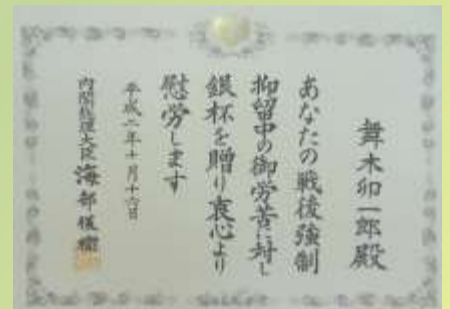 舞木卯一郎殿
あなたの戦後強制
抑留中の御労苦に対し
銀杯を贈り衷心より
慰労します
平成二年十月十六日
内閣総理大臣 海部俊樹